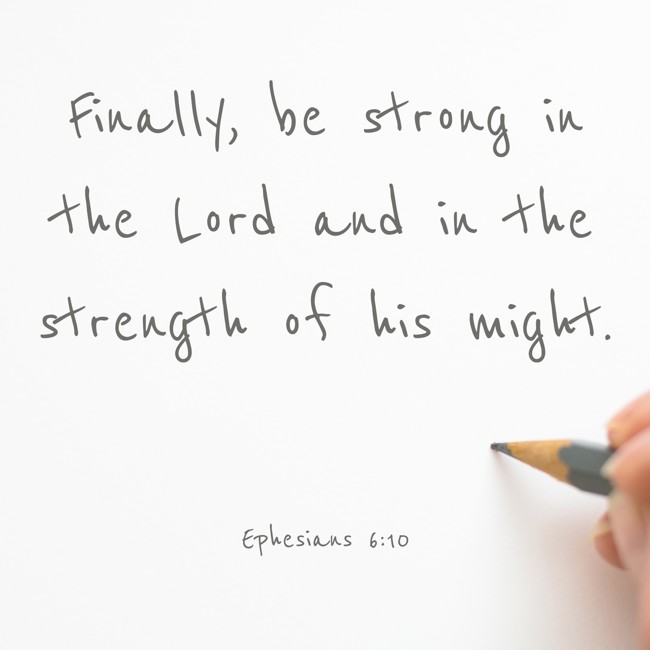 Finally, be strong in
the Lord and in the
strength of his might.
Ephesians 6:10